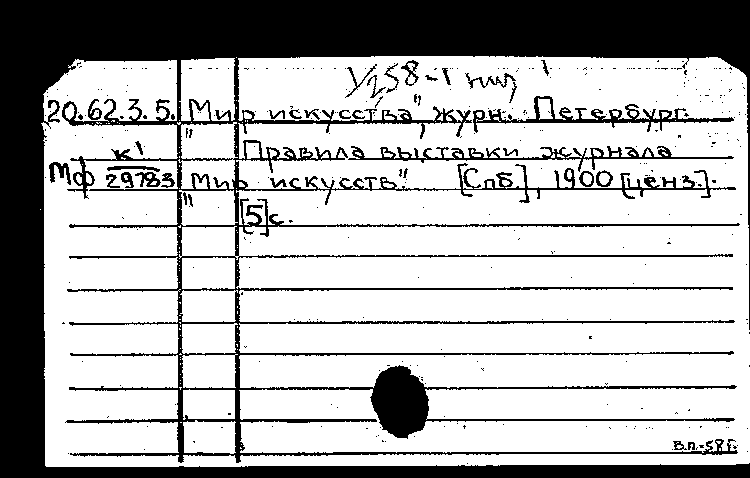 20.62.3.5. „Мир искусства", журн. Петербург.
Правила выставки журнала
Мф К1/29783 „Мир искусств". [Спб.], 1900 [ценз.].
[5]с.
В.п.-58г.